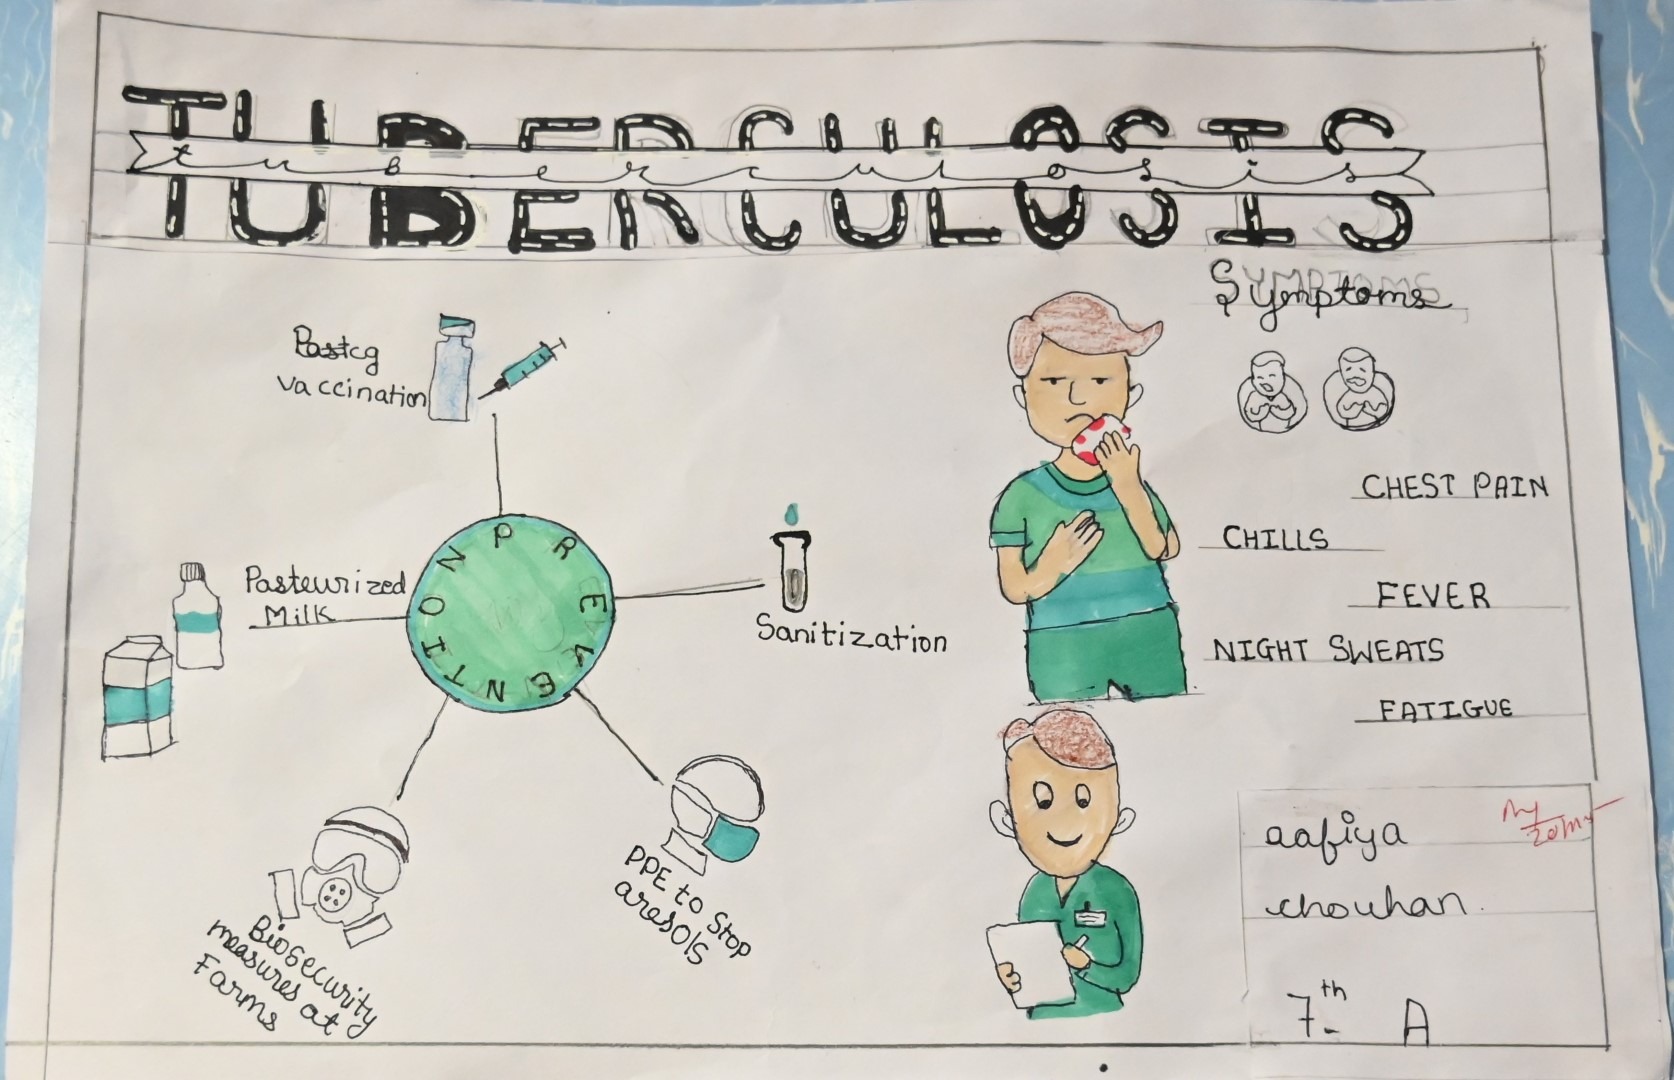 TUBERCULOSIS
tuberculosis
Symptoms
Pastcg
vaccination
CHEST PAIN
CHILLS
FEVER
NIGHT SWEATS
FATIGUE
PREVENTION
Pasteurized
Milk
Sanitization
PPE to Stop
aresols
Biosecurity
measures at
Farms
aafiya
chouhan.
7th A